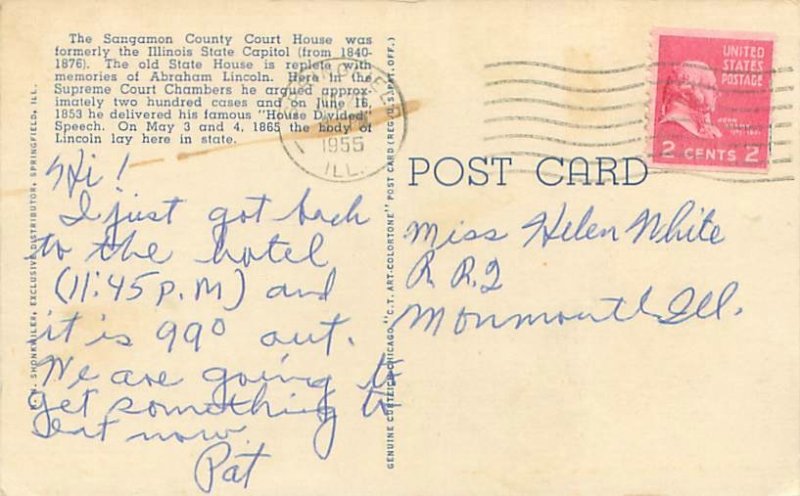 The Sangamon County Court House was
formerly the Illinois State Capitol (from 1840-
1876). The old State House is replete with
memories of Abraham Lincoln. Here in the
Supreme Court Chambers he argued approx-
imately two hundred cases and on June 16,
1853 he delivered his famous "House Divided"
Speech. On May 3 and 4, 1865 the body of
Lincoln lay here in state.
Hi!
I just got back
to the hotel
(11:45 P.M) and
it is 99° out.
We are going to
get something to
eat now.
Pat
SHONKWILER, EXCLUSIVE DISTRIBUTOR, SPRINGFIELD, ILL.
1955
ILL.
GENUINE CURTEICH-CHICAGO "C.T. ART-COLORTONE" POST CARD (REG. U.S. PAT. OFF.)
UNITED
STATES
POSTAGE
JOHN
2 CENTS 2
POST CARD
Miss Helen White
R. R. 2
Monmouth Ill.